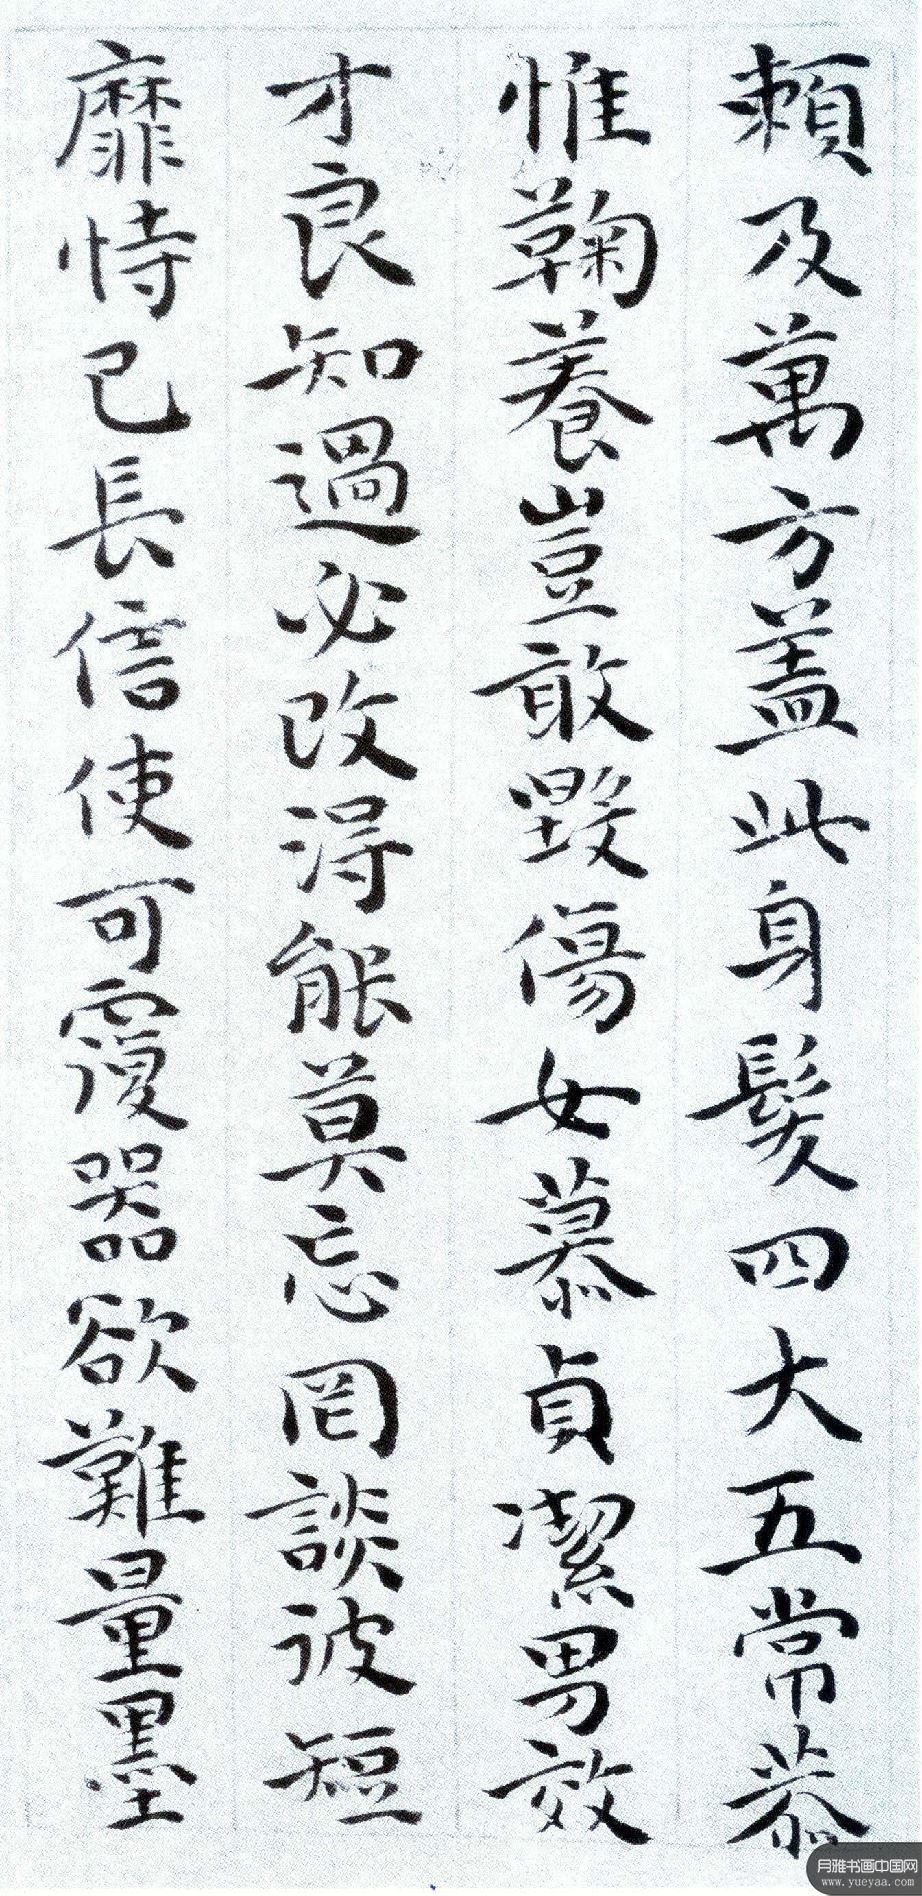 頼及萬方蓋此身髮四大五常恭
惟鞠養豈敢毀傷女慕貞潔男效
才良知過必改得能莫忘罔談彼短
靡恃己長信使可覆器欲難量墨
月雅书画中国网
www.yueyaa.com